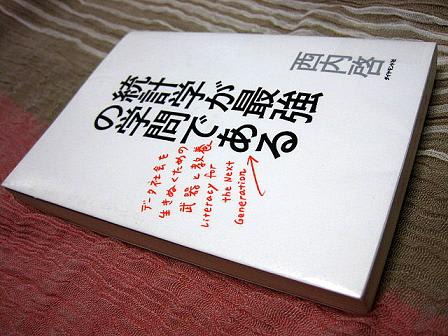 統計学が最強
の学問である
西内啓
ダイヤモンド社
データ社会を
生きぬくための
武器と教養
Literacy for
the Next
Generation